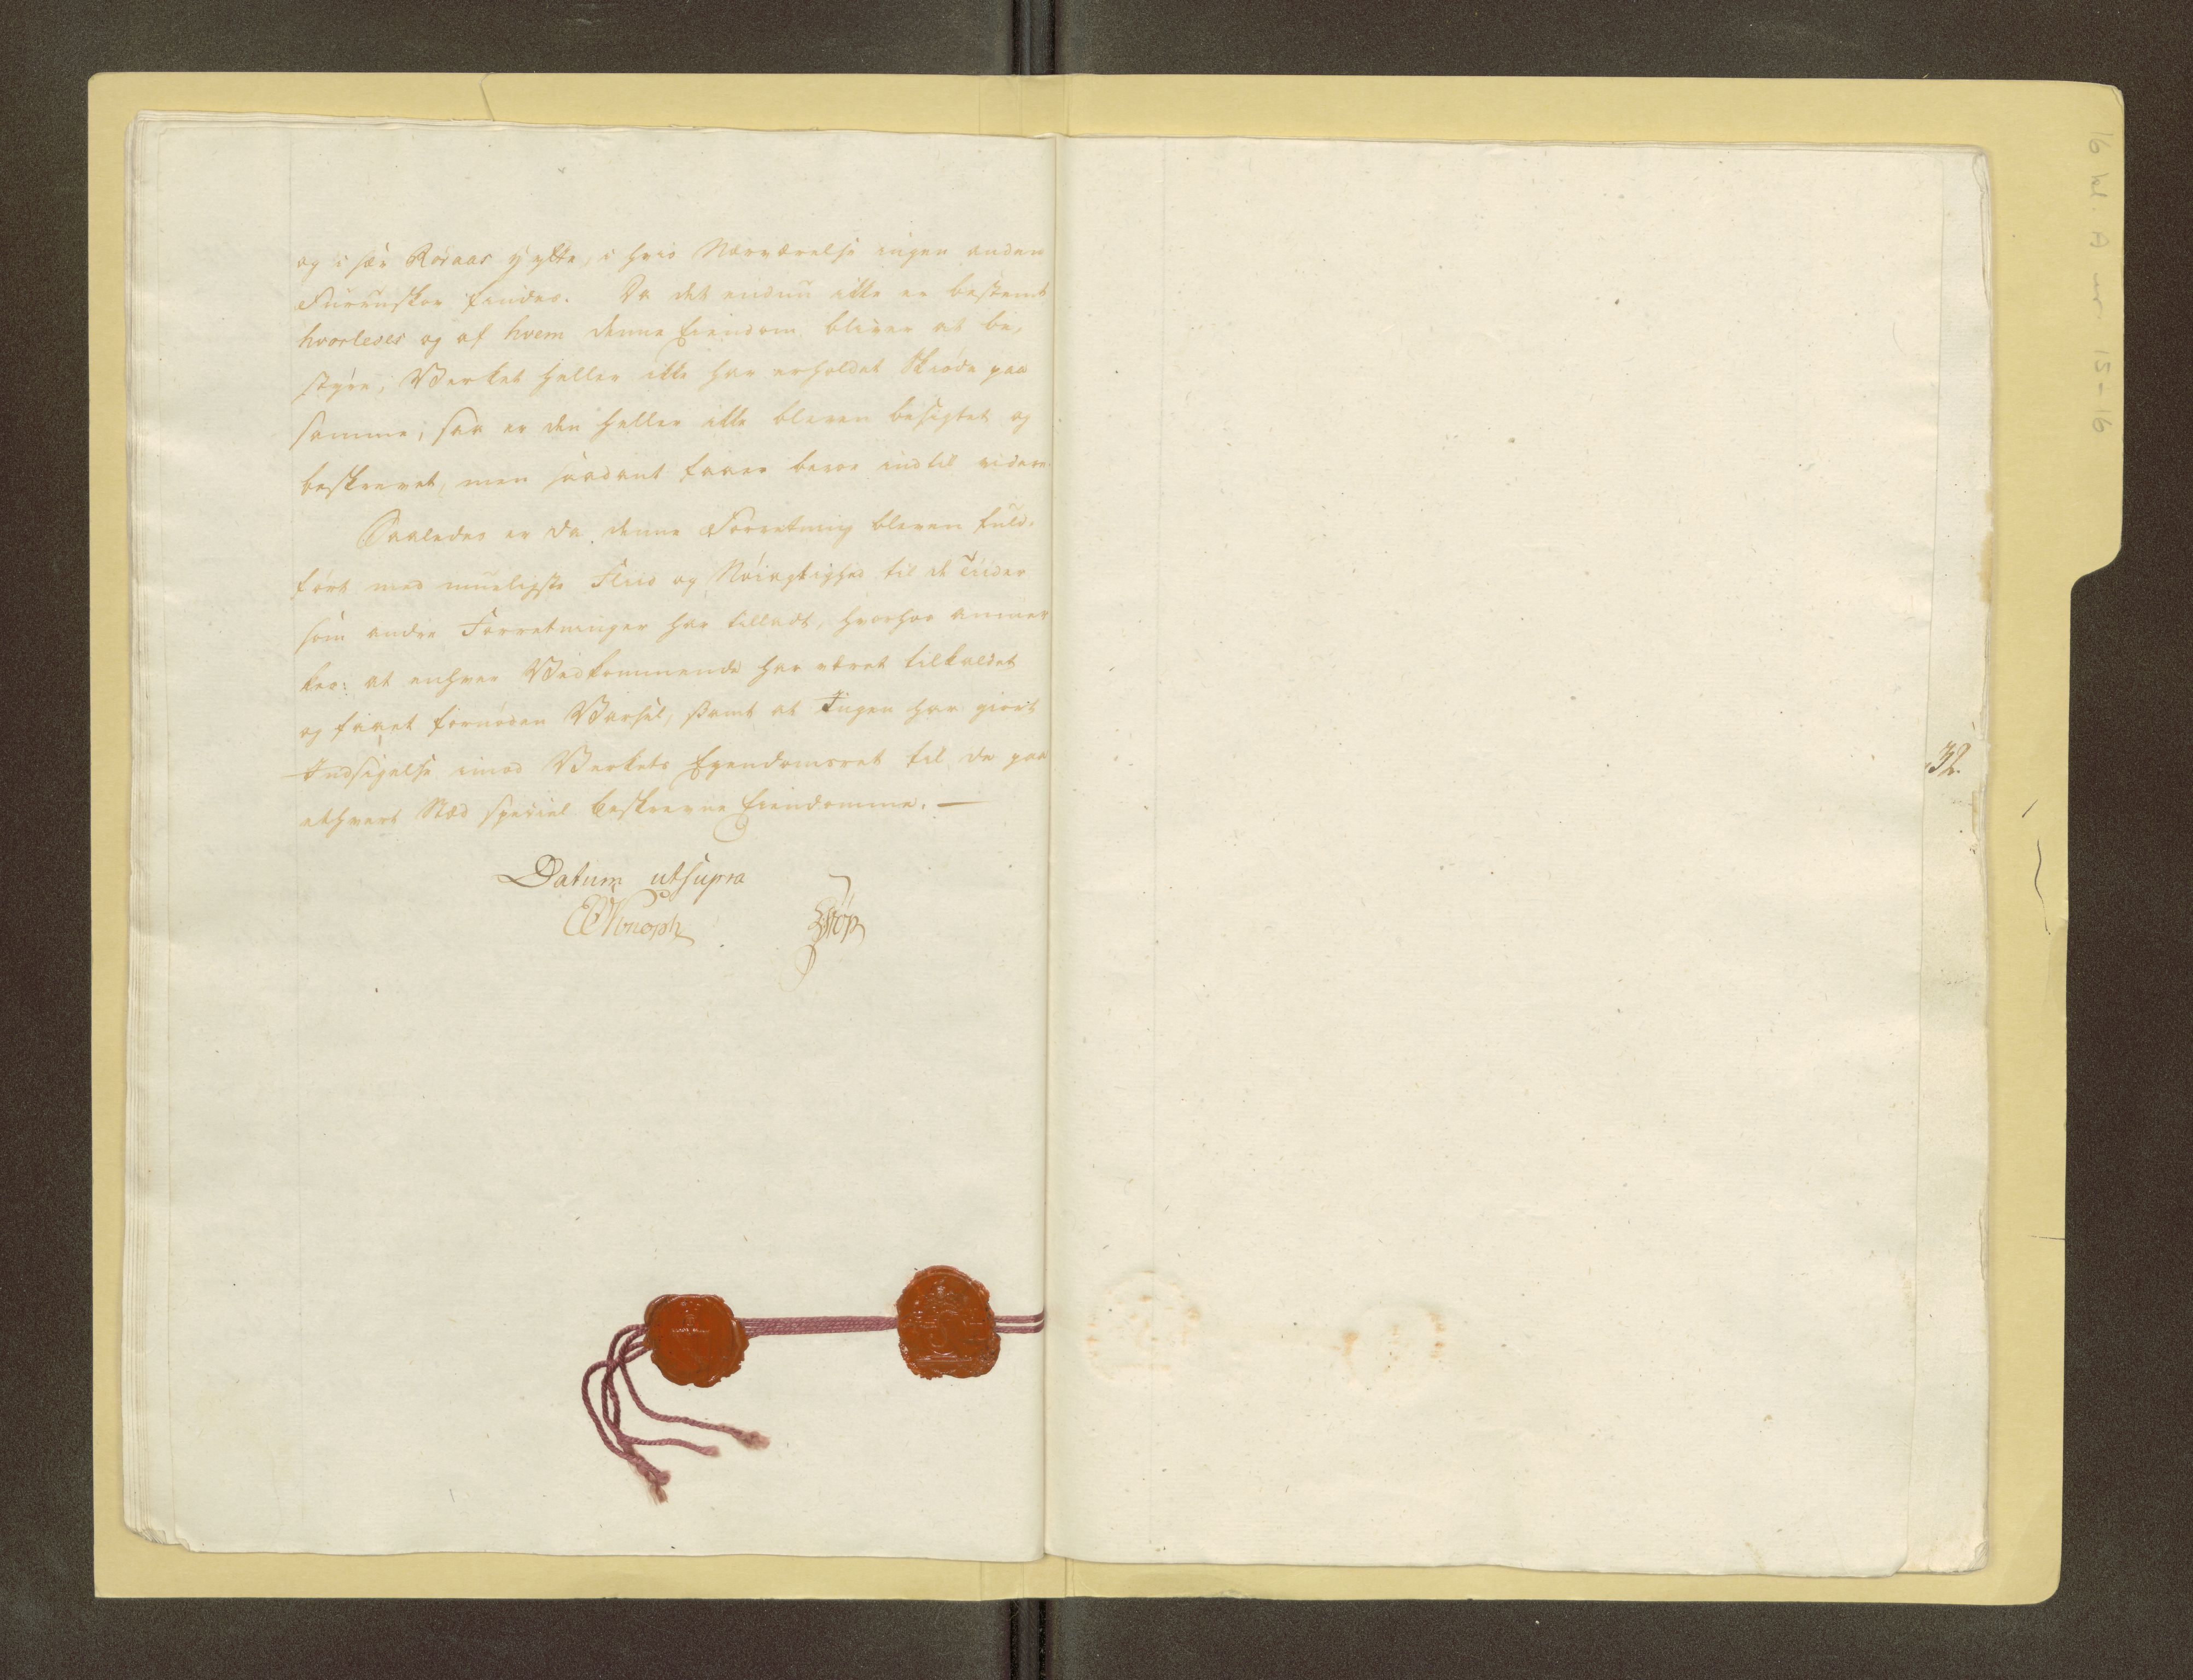 og i sær Røraas Hytte, i hvis Nærværelse ingen anden
Furuuskov findes. Da det endnu ikke er bestemt
hvorledes og af hvem denne Eiendom bliver at be-
styre, Værket heller ikke har erholdet Skiøde paa
samme; saa er den heller ikke bleven besigtet og
beskrevet, men saadant faaer beroe indtil videre.
Saaledes er da denne Forretning bleven fuld-
ført med mueligste Fliid og Nøiagtighed til de Tider
som andre Forretninger har tilladt, hvorhos anmer-
kes: at enhver Vedkommende har været tilkaldet
og faaet fornøden Varsel, samt at Ingen har giort
Indsigelse imod Værkets Eyendomsret til de paa
ethvert Stæd speciel beskrevne Eiendomme. —
Datum ut supra
Knoph
32.
16 kl. A nr. 15-16